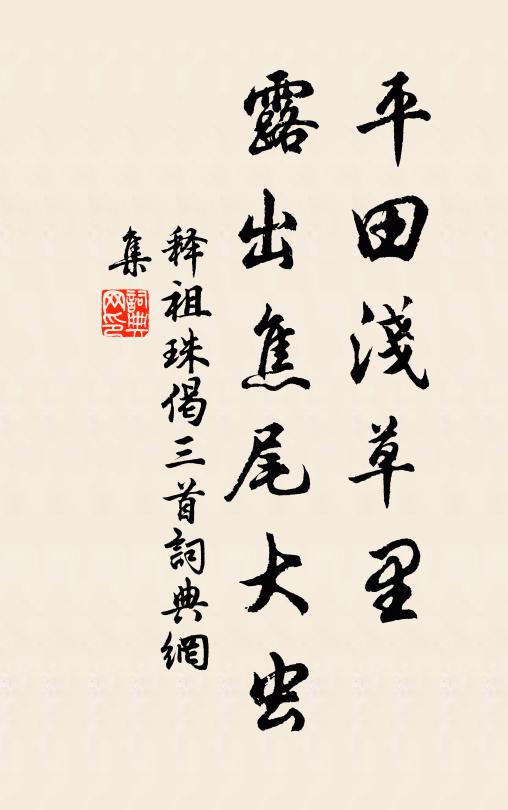 平田淺草里
露出焦尾大虫
释祖珠偈三首詞典網
集
詞典
网印